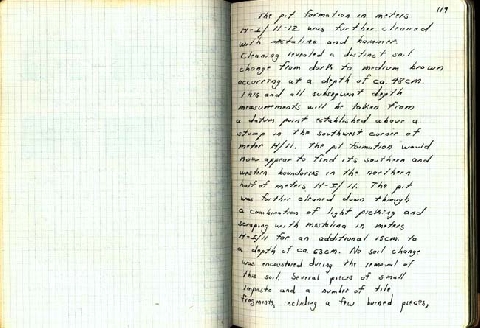 119
The pit formation in meters
H-I/11-12 was further cleaned
with mattalina and hammer.
Cleaning revealed a distinct soil
change from dark to medium brown
occurring at a depth of ca. 48cm.
This and all subsequent depth
measurements will be taken from
a datum point established above a
stump in the southwest corner of
meter H/11. The pit formation would
now appear to find its southern and
western boundaries in the northern
half of meters H-I/11. The pit
was further cleaned down through
a combination of light picking and
scraping with mattalina in meters
H-I/11 for an additional 15cm. to
a depth of ca. 63cm. No soil change
was encountered during the removal of
this soil. Several pieces of small
impasto and a number of tile
fragments, including a few burned pieces,